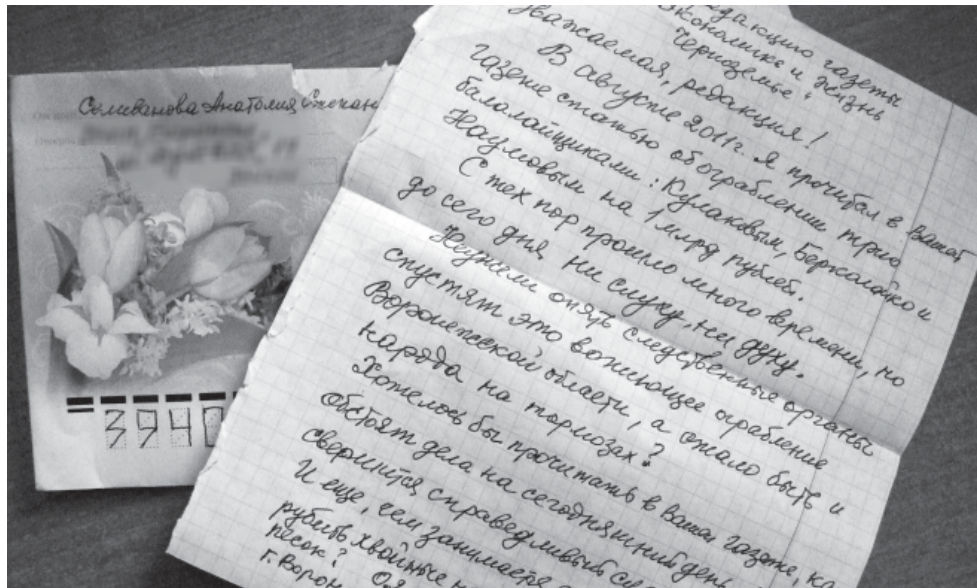 Селиванова Анатолия Степан
394
редакцию газеты
Экономика и жизнь
Черноземье"
Уважаемая, редакция!
В августе 2011г. я прочитал в Вашей
газете статью об ограблении трио
балалайщиками: Кулаковым, Беркалайко и
Наумовым на 1 млрд рублей.
С тех пор прошло много времени, но
до сего дня ни слуху, ни духу.
Неужели опять следственные органы
спустят это вопиющее ограбление
Воронежской области, а стало быть и
народа на тормозах?
Хотелось бы прочитать в Вашей газете, ка
обстоят дела на сегодняшний день
свершится справедливый
И еще, чем занимается
рубить хвойные
песок?
г. Ворон